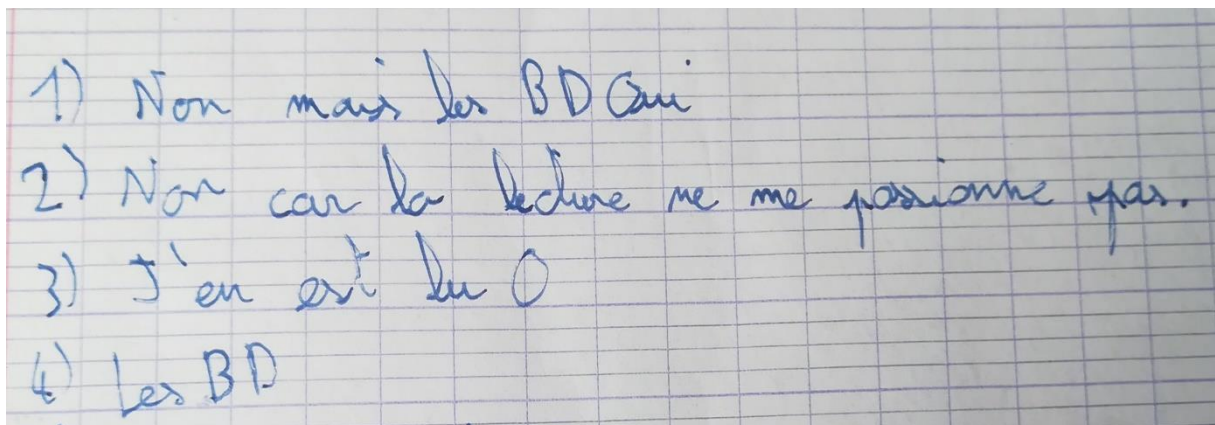 1) Non mais les BD Oui
2) Non car la lecture ne me passionne pas.
3) J'en est lu 0
4) Les BD